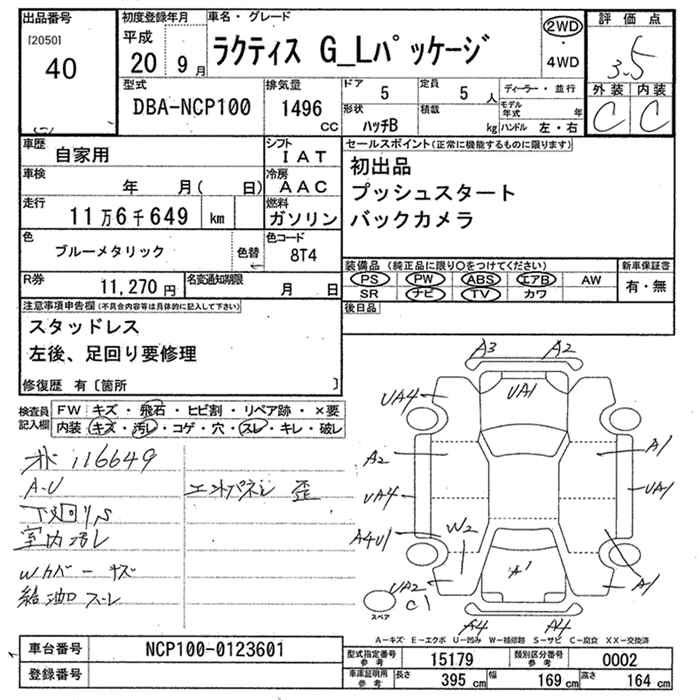 出品番号
[2050]
40
初度登録年月
平成
20 9月
車名・グレード
ラクティス G_Lパッケージ
2WD
・
4WD
評価点
3.5
外装 内装
C C
型式
DBA-NCP100
排気量
1496
CC
ドア
5
定員
5 人
ディーラー・並行
モデル年式 年
形状
ハッチB
積載
kg
ハンドル 左・右
車歴
自家用
シフト
IAT
車検
年 月( 日)
冷房
AAC
走行
11万6千649 km
燃料
ガソリン
色
ブルーメタリック
色替
色コード
8T4
R券
11,270円
名変通知期限
月 日
セールスポイント(正常に機能するものに限ります)
初出品
プッシュスタート
バックカメラ
装備品 (純正品に限り○をつけてください)
PS PW ABS エアB AW
SR ナビ TV カワ
新車保証書
有・無
後日品
注意事項申告欄(不具合内容等は具体的に記入して下さい)
スタッドレス
左後、足回り要修理
修復歴 有〔箇所 〕
検査員記入欄
FW キズ・飛石・ヒビ割・リペア跡・×要
内装 キズ・汚レ・コゲ・穴・スレ・キレ・破レ
i16649
A-U
下廻りS
室内汚レ
Wカバーキズ
給油スレ
エンドパネル 歪
A3 A2
UA4 UA1
A2 A1
UA4 UA1
A4U1 W2
A1
UA2 C1 A1
スペア
A4 A4
A-キズ E-エクボ U-凹み W-補修跡 S-サビ C-腐食 XX-交換済
車台番号
NCP100-0123601
登録番号
型式指定番号
参考
15179
類別区分番号
参考
0002
車庫証明用
参考
長さ 395 cm 幅 169 cm 高さ 164 cm